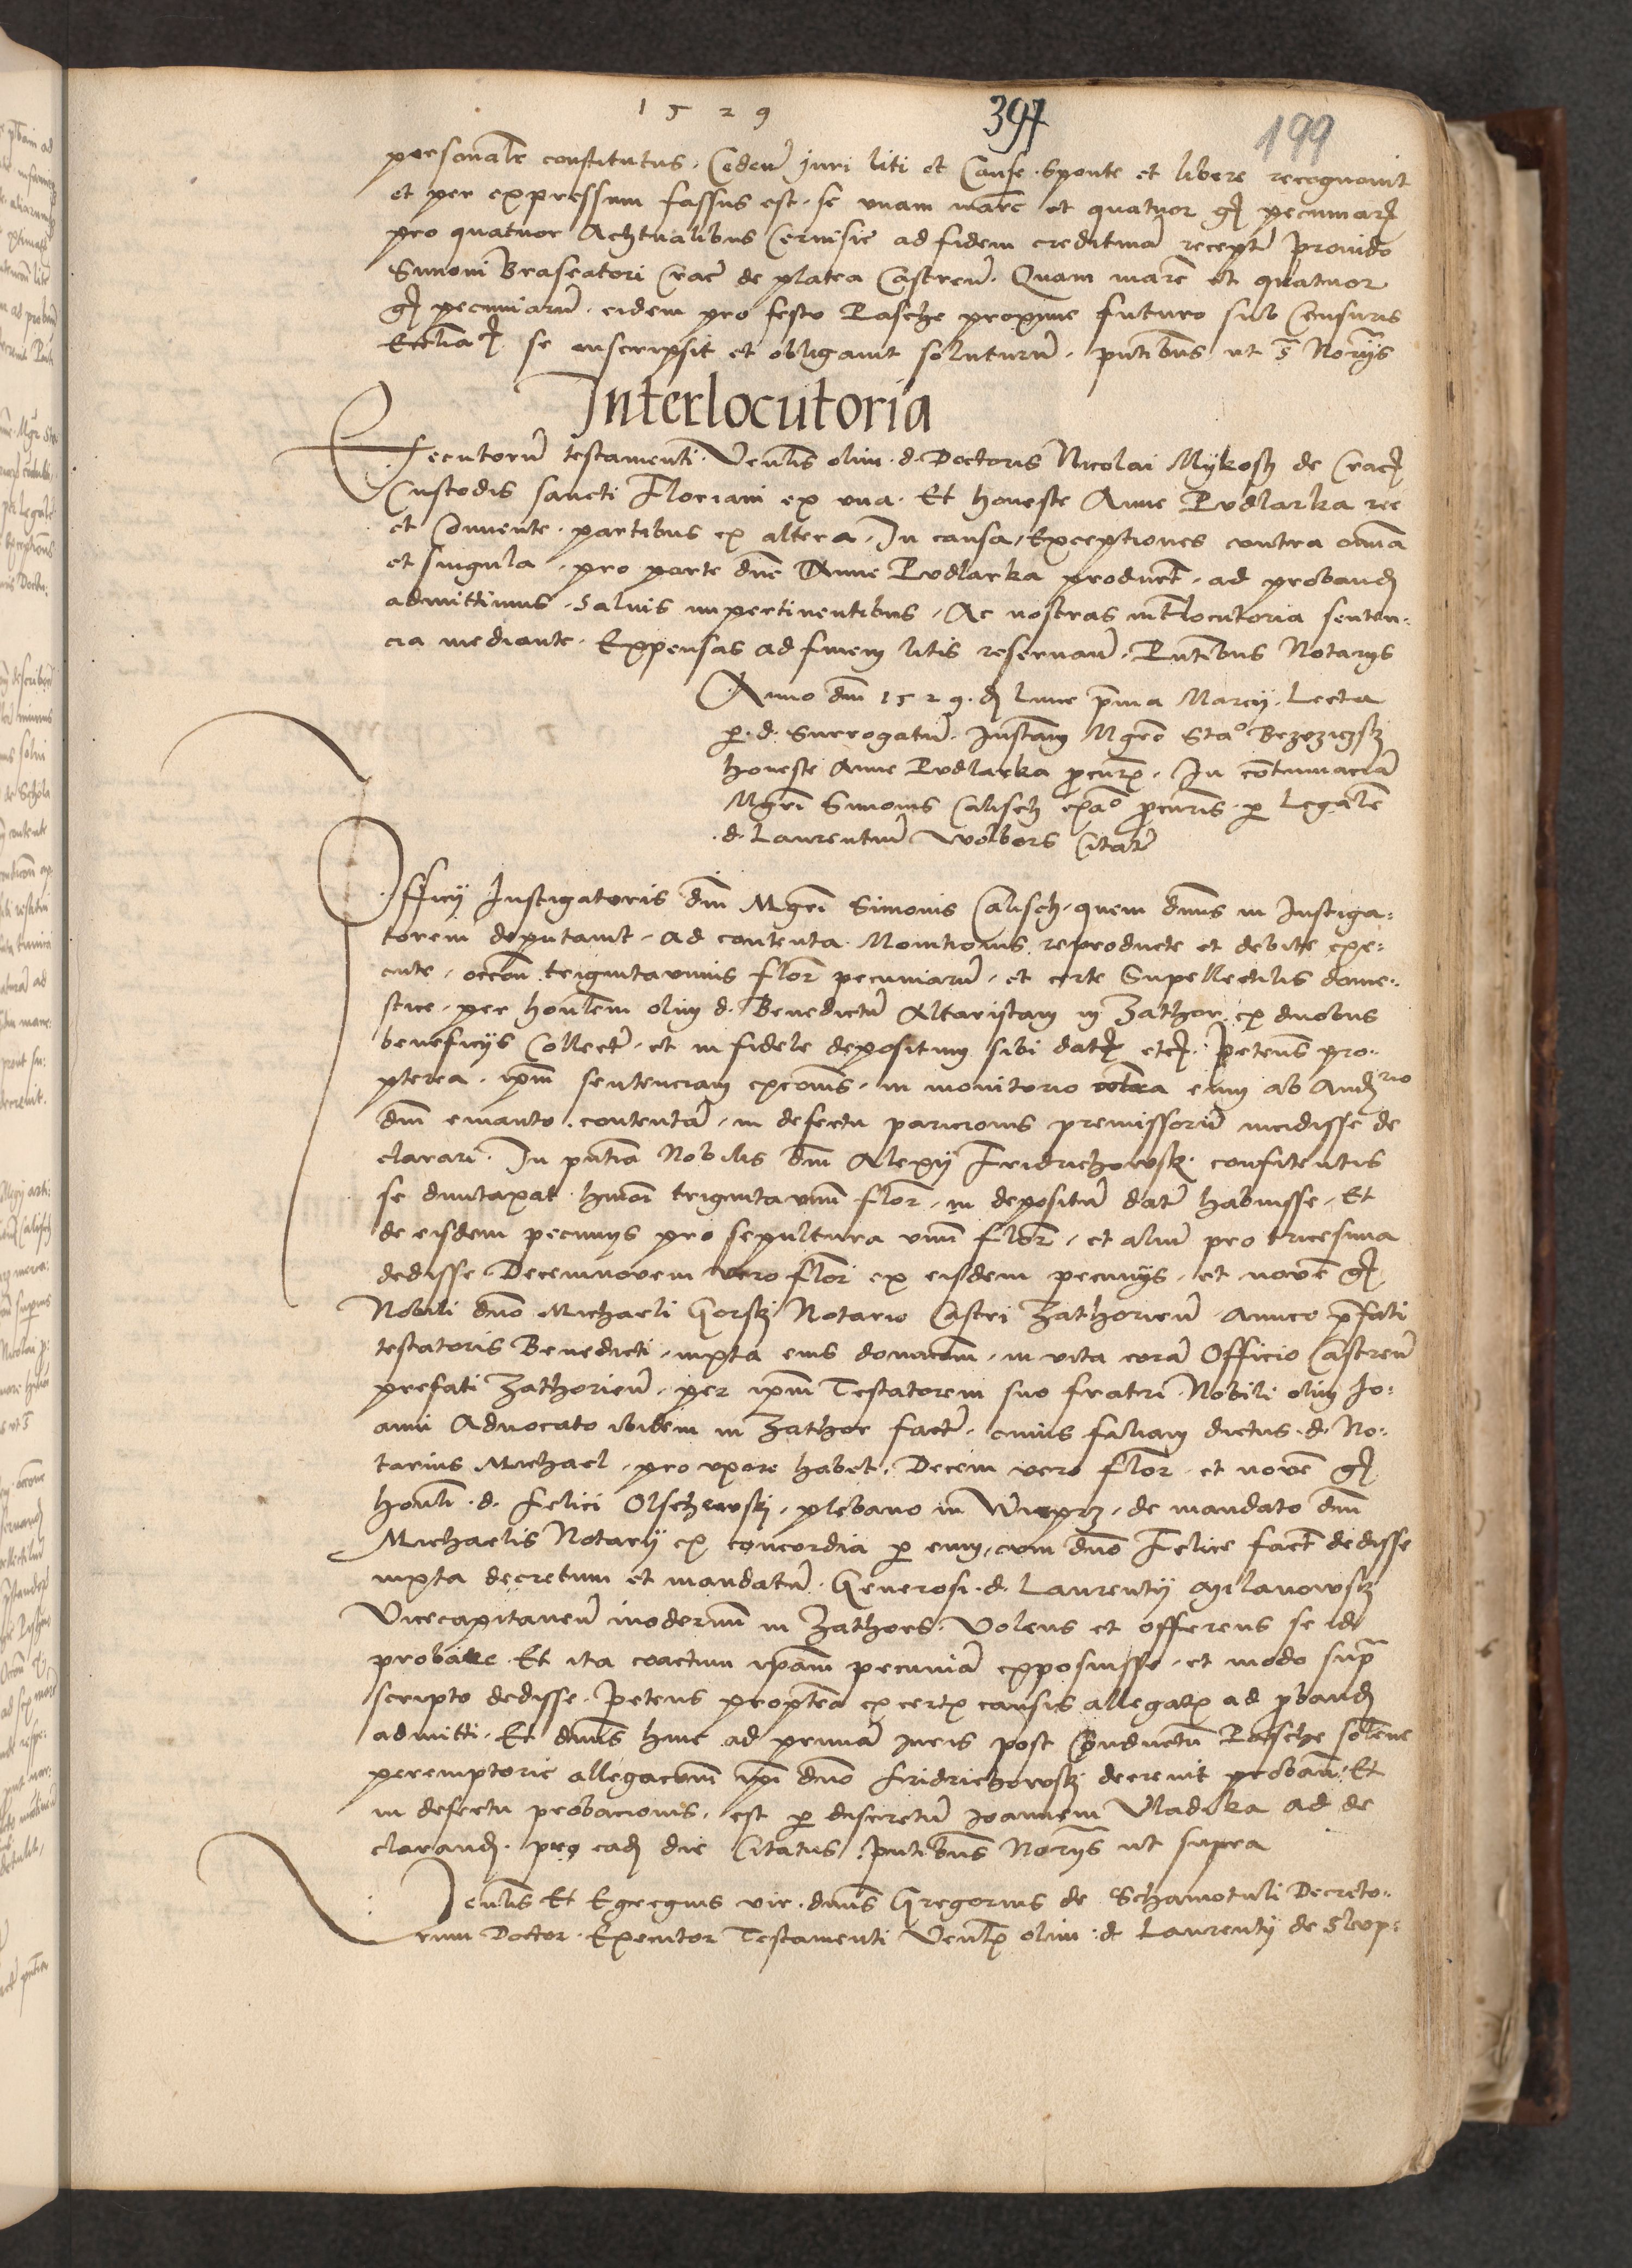 1529 397 199
personale constitutus. Ceden̄ Juri liti et Cause. Sponte et libere recognovit
et per expressum fassus est. se unam marc̄ et quatuor gꝭ pecuniarꝭ
pro quatuor Achtualibus Cervisie ad fidem creditivā recepte Provido
Simoni Braseatori Crac̄ de platea Castren̄. Quam marc̄ et quatuor
gꝭ pecuniarū. eidem pro festo Pasche proxime futuro sub Censuris
Ecclīaꝭ se inscripsit et obligavit soluturū. pn̄tibus ut s̄ Nor̄ijs
Interlocutoria
Executorū testamenti. Ven̄lis olim. d. Doctoris Nicolai Mÿkosz de Cracꝭ
Custodis sancti Floriani ex una. Et honeste Anne Pudlarka ree
et Convente. partibus ex altera. In causa, Exceptiones contra om̄ia
et singula. pro parte dn̄e Anne Pudlarka product̄. ad probandꝭ
admittimus. salvis impertinentibus. Ac nostras int̄locutoria senten:
cia mediante. Expensas ad finem litis reservan̄. Pn̄tibus Notarijs
Anno dn̄i 1529. dꝭ lune p̄ma Marcij. Lecta
ꝑ. d. Surrogatū. Instan̄ M̄gro Sta°
honeste Anne Pudlarka ꝓcurꝭ. In contumaciā
M̄gri Simonis Calisch exa° ꝓcuris. ꝑ Legalē
.d. Laurentiū Wolbors Citat̄
Officij Instigatoris dn̄i M̄gri Simonis Calisch. quem dn̄us in Instiga:
torem deputavit. ad contenta Monitionis reproducte et debite exe:
cute. occōn̄ trigintaunius flor̄ pecuniarū. et certe Supellectilis dome:
stice. per hon̄lem olim d. Benedictū Altaristam in Zathor, ex duobus
beneficijs Collect̄. et in fidele depositum sibi datꝭ etcꝭ. Petens pro:
pterea. ip̄m sentenciam excōnis. in monitorio contra eum ab Audꝭrio
dn̄i emanto. contentā. in defectu paricionis premissorū incidisse de
clarari. In pn̄tia Nobilis dn̄i Alexij Fridrichowskꝭ confitentis
se duntaxat hmōi triginta unū flor̄. in depositū dat̄ habuisse. Et
de eisdem pecunijs pro sepultura unū flor̄. et aliū pro tricesima
dedisse. Decemnovem vero flor̄ ex eisdem pecunijs. et novē gꝭ
Nobili dn̄o Michaeli Gorskꝭ Notario Castri Zathorien̄. amico p̄fati
testatoris Benedicti. iuxta eius donacōnem. in vita corā Officio Castren̄
prefati Zathorien̄. per ip̄m Testatorem suo fratri. Nobili olim Jo:
anni Advocato ibidem in Zathor fact̄. cuius filiam dictus. d. No:
tarius Michael. pro uxore habet. Decem vero flor̄. et novē gꝭ
Hon̄li. d. Felici Olschewskꝭ. plebano in Wieprz. de mandato dn̄i
Michaelis Notarij ex concordia ꝑ eum, cum dn̄o Felice fact̄ dedisse
iuxta decretum et mandatū. Generosi. d. Laurentij Milanowskꝭ
Vicecapitaneū modernū in Zathors. Volens et offerens se id
probare. Et ita coactum ip̄am pecuniā exposuisse. et modo sup̄ra
scripto dedisse. Petens propterea ex certꝭ causis allegatꝭ ad ꝓbandꝭ
admitti. Et dn̄us hinc ad primā Juris post Conductū Pasche solēne
peremptorie allegacōnem ip̄i dn̄o Fridrichowskꝭ decrevit proban̄. Et
in defectu probacionis. est ꝑ discretū Joannem Vladika ad de
clarandꝭ. pro eadꝭ die Citatus. Pn̄tibus Nor̄ijs ut supra
Ven̄lis Et Egregius vir. dn̄us Gregorius de Schamotuli Decreto:
rum Doctor. Executor Testamenti Ven̄lꝭ olim. d. Laurentij de Slup: